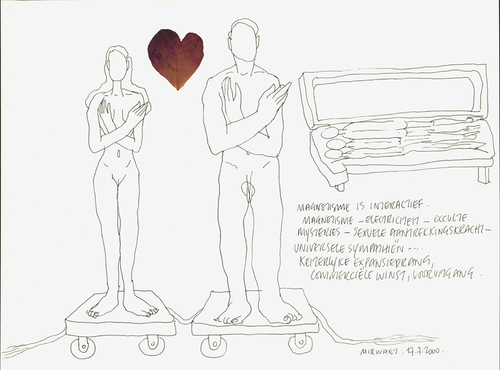 MAGNETISME IS INTERACTIEF.
MAGNETISME - ELECTRICITEIT - OCCULTE
MYSTERIES - SEXUELE AANTREKKINGSKRACHT -
UNIVERSELE SYMPATHIËN ....
KEIZERLIJKE EXPANSIEDRANG,
COMMERCIËLE WINST, VOORUITGANG.
MIRWART. 17.7.2000.